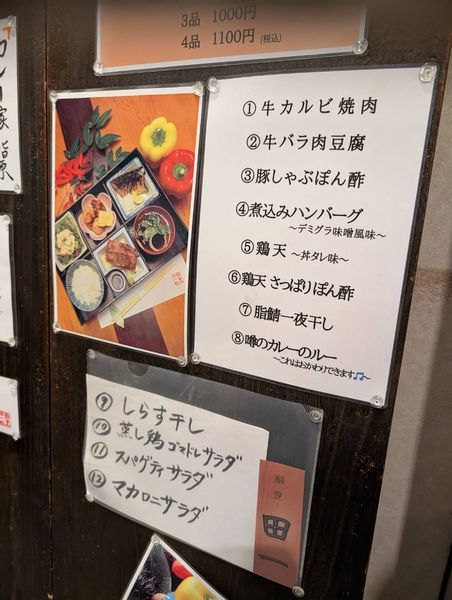 3品 1000円
4品 1100円(税込)
①牛カルビ焼肉
②牛バラ肉豆腐
③豚しゃぶぽん酢
④煮込みハンバーグ
～デミグラ味噌風味～
⑤鶏天 ～丼タレ味～
⑥鶏天 さっぱりぽん酢
⑦脂鯖一夜干し
⑧噂のカレーのルー
～これはおかわりできます🎵～
⑨ しらす干し
⑩ 蒸し鶏ゴマドレサラダ
⑪ スパゲティサラダ
⑫ マカロニサラダ
割烹
田一